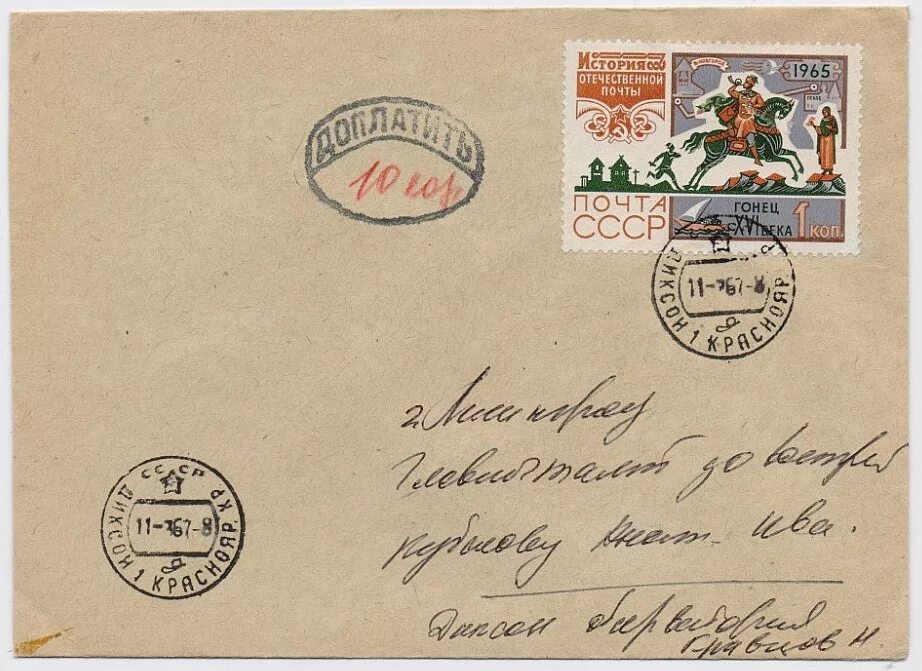 ИСТОРИЯ
ОТЕЧЕСТВЕННОЙ
ПОЧТЫ
НОВГОРОД
1965
ПОЧТА
СССР
ГОНЕЦ
XVI ВЕКА
1 КОП.
ДОПЛАТИТЬ
10 коп
ДИКСОН 1 КРАСНОЯР.
11-  67-8
г. Ленинград
Главпочтамт до востреб
Кубышову Игнат. Ива.
Диксон обсерватория
Кравцов Н
СССР
ДИКСОН 1 КРАСНОЯР. КР
11-  67-8